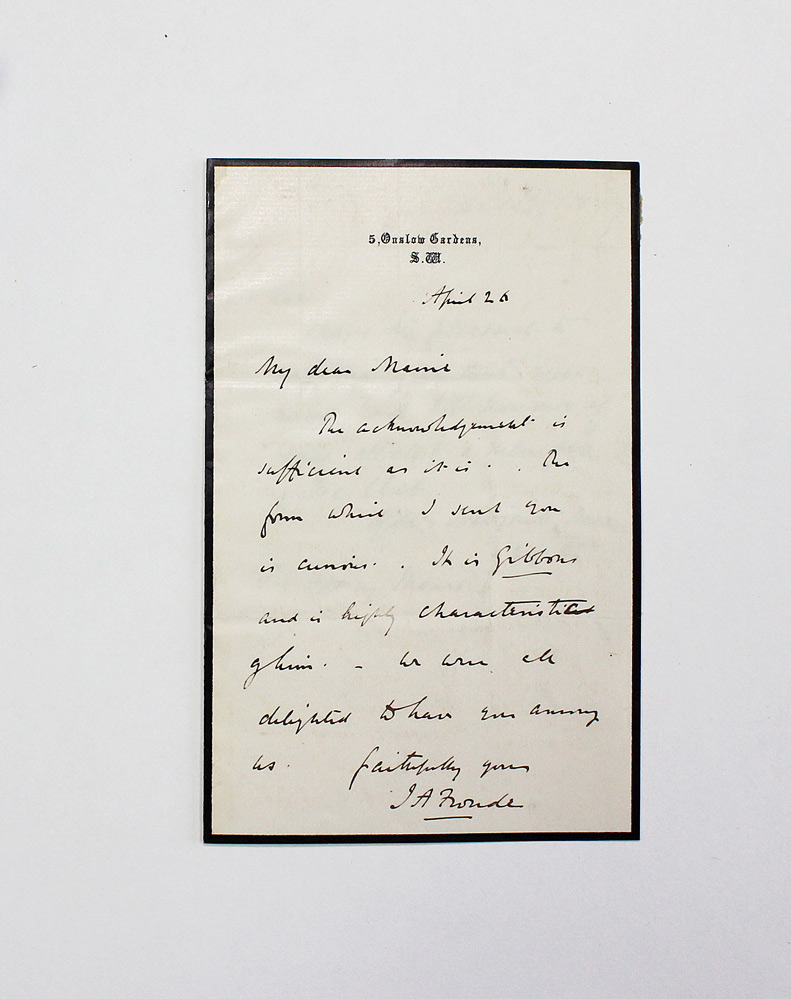 5, Onslow Gardens,
S.W.
April 26
My dear Maine
The acknowledgement is
sufficient as it is. . The
form which I sent you
is curious. . It is Gibbons
and is highly characteristic
of him. - We were all
delighted to have you among
us. faithfully yours
J A Froude